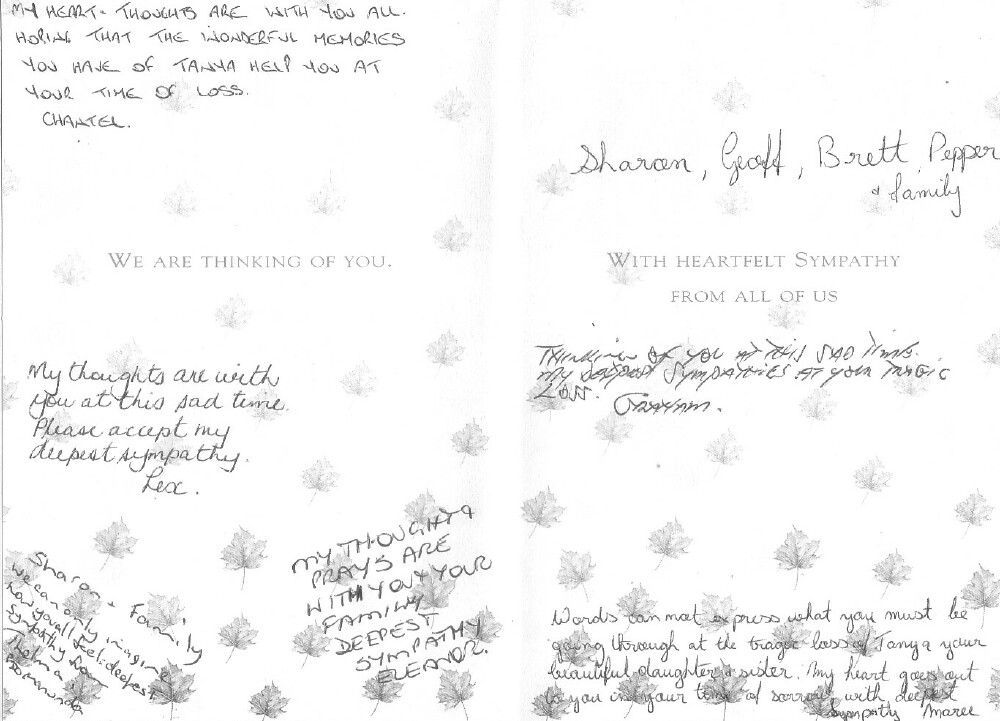 MY HEART + THOUGHTS ARE WITH YOU ALL.
HOPING THAT THE WONDERFUL MEMORIES
YOU HAVE OF TANYA HELP YOU AT
YOUR TIME OF LOSS.
CHANTEL.
WE ARE THINKING OF YOU.
My thoughts are with
you at this sad time.
Please accept my
deepest sympathy.
Lex.
Sharon + Family
we can only imagine
how you all feel. deepest
Sympathy from
Thelma
MY THOUGHTS &
PRAYS ARE
WITH YOU & YOUR
FAMILY
DEEPEST
SYMPATHY
ELEANOR.
Sharon, Geoff, Brett, Pepper
& family
WITH HEARTFELT SYMPATHY
FROM ALL OF US
THINKING OF YOU AT THIS SAD TIME.
MY DEEPEST SYMPATHIES AT YOUR TRAGIC
LOSS.
Words can not express what you must be
going through at the tragic loss of Tanya your
beautiful daughter & sister. My heart goes out
to you in your time of sorrow with deepest
Sympathy Maree